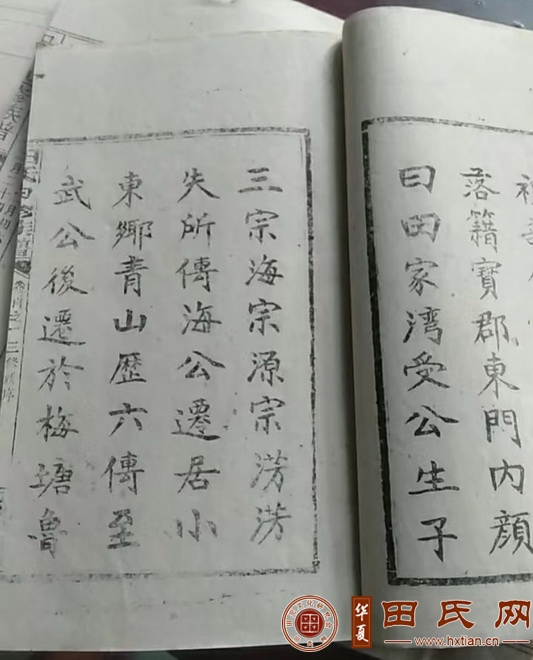 落籍寶郡東門内顔
曰田家湾受公生子
三宗海宗源宗滂滂
失所傳海公遷居小
東鄉青山歷六傳至
武公後遷於梅塘魯
華夏
田氏网
www.hxtian.cn